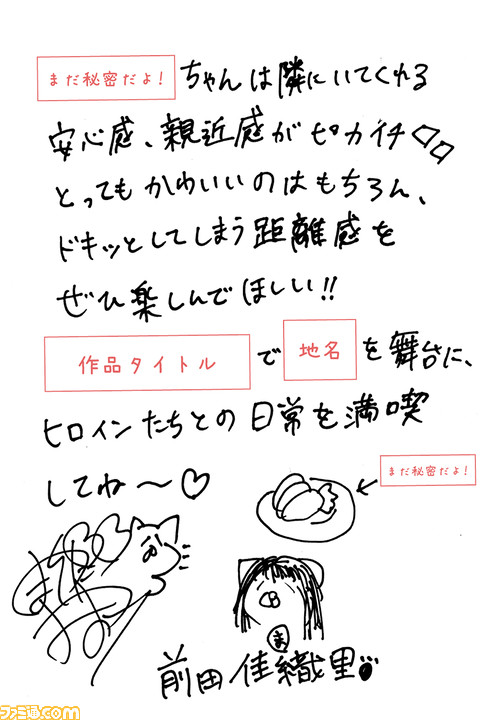 まだ秘密だよ！ちゃんは隣にいてくれる
安心感、親近感がピカイチ
とってもかわいいのはもちろん、
ドキッとしてしまう距離感を
ぜひ楽しんでほしい!!
作品タイトルで地名を舞台に、
ヒロインたちとの日常を満喫
してね〜♡
まだ秘密だよ！
ま
前田佳織里
ファミ通.com